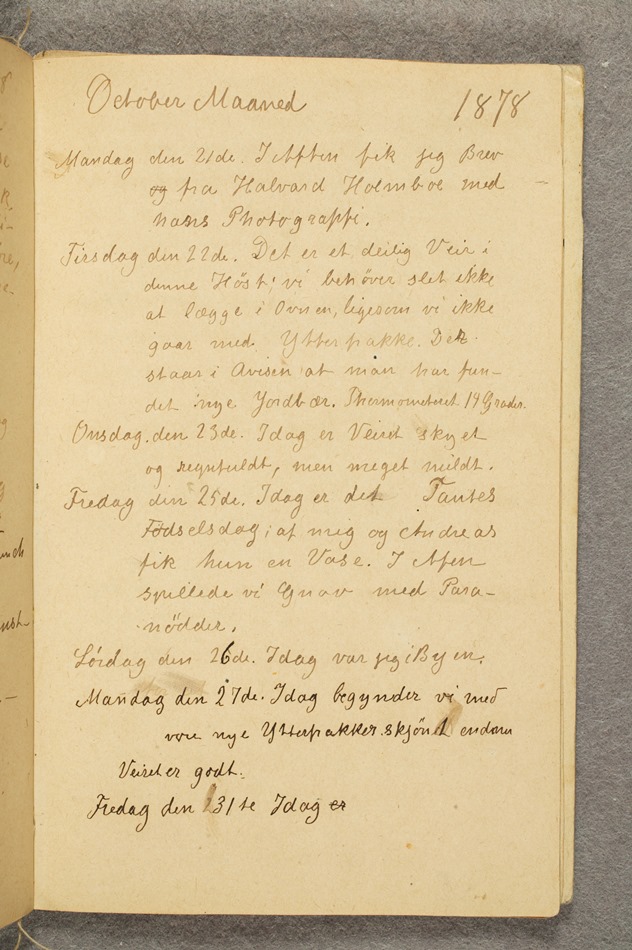 October Maaned 1878
Mandag den 21de. I Aften fik jeg Brev
og fra Halvard Holmboe med
hans Photografti.
Tirsdag den 22de. Det er et deilig Veir i
denne Höst; vi behöver slet ikke
at lægge i Ovnen, ligesom vi ikke
gaar med Ytterfrakke. Der
staar i Avisen at man har fun-
det nye Jordbær. Thermometeret 19 Grader.
Onsdag. den 23de. Idag er Veiret skyet
og regnfuldt, men meget mildt.
Fredag den 25de. Idag er det Tantes
Födselsdag; af meg og Andreas
fik hun en Vase. I Afen
spillede vi Gnav med Para-
nödder.
Lördag den 26de. Idag var jeg i Byen.
Mandag den 27de. Idag begynder vi med
vore nye Ytterfrakker. skjönt endnu
Veiret er godt.
Fredag den 31te Idag er